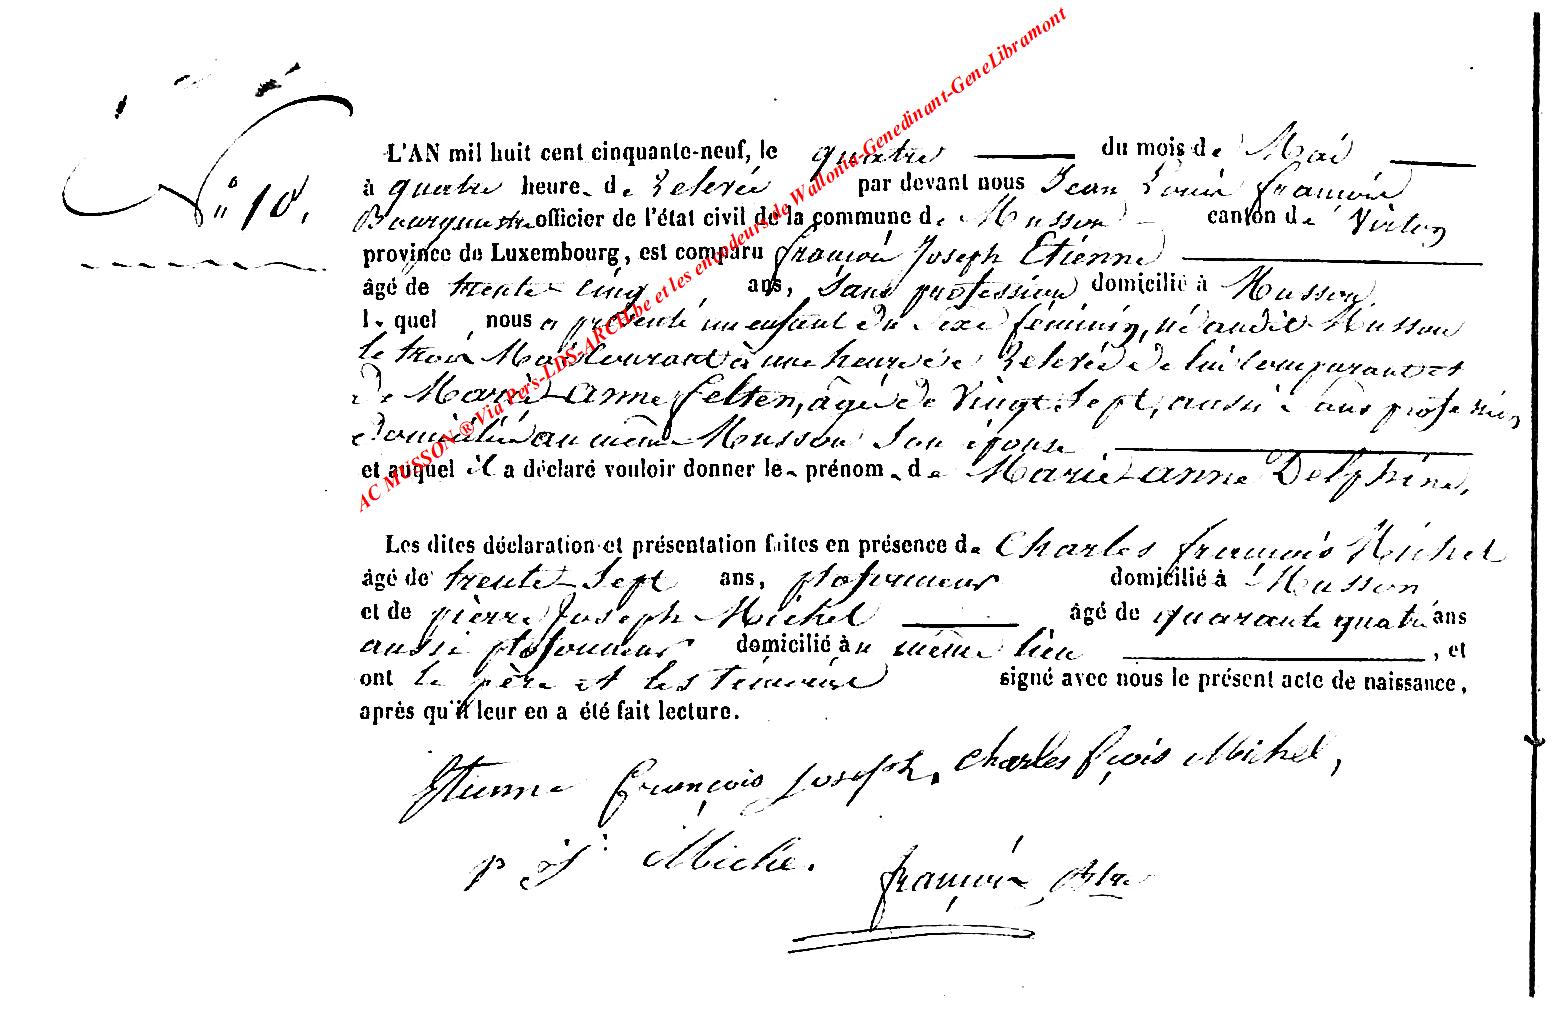 N.° 18.
L'AN mil huit cent cinquante-neuf, le quatre du mois de Mai
à quatre heure de relevée par devant nous Jean Louis françois
Bourgumestre officier de l'état civil de la commune de Musson canton de Virton
province de Luxembourg, est comparu françois Joseph Etienne
âgé de trente cinq ans, sans profession domicilié à Musson,
lequel nous a présenté un enfant du sexe féminin, né audit Musson
le trois Mai courant à une heure de relevée de lui comparant et
de Marie-anne felten, âgée de vingt sept, aussi sans profession
domiciliée au même Musson son épouse
et auquel il a déclaré vouloir donner le prénom de Marie-anne Delphine.
Les dites déclaration et présentation faites en présence de Charles françois Michel
âgé de trente sept ans, plafonneur domicilié à Musson
et de pierre Joseph Michel âgé de quarante quatre ans
aussi plafonneur domicilié au même lieu , et
ont le père et les témoins signé avec nous le présent acte de naissance,
après qu'il leur en a été fait lecture.
Etienne François Joseph. Charles fçois Michel,
p J. Michel.
françois
AC MUSSON ® Via Pers-LDS-ARCH.be et les encodeurs de Wallonia-Genedinant-GeneLibramont